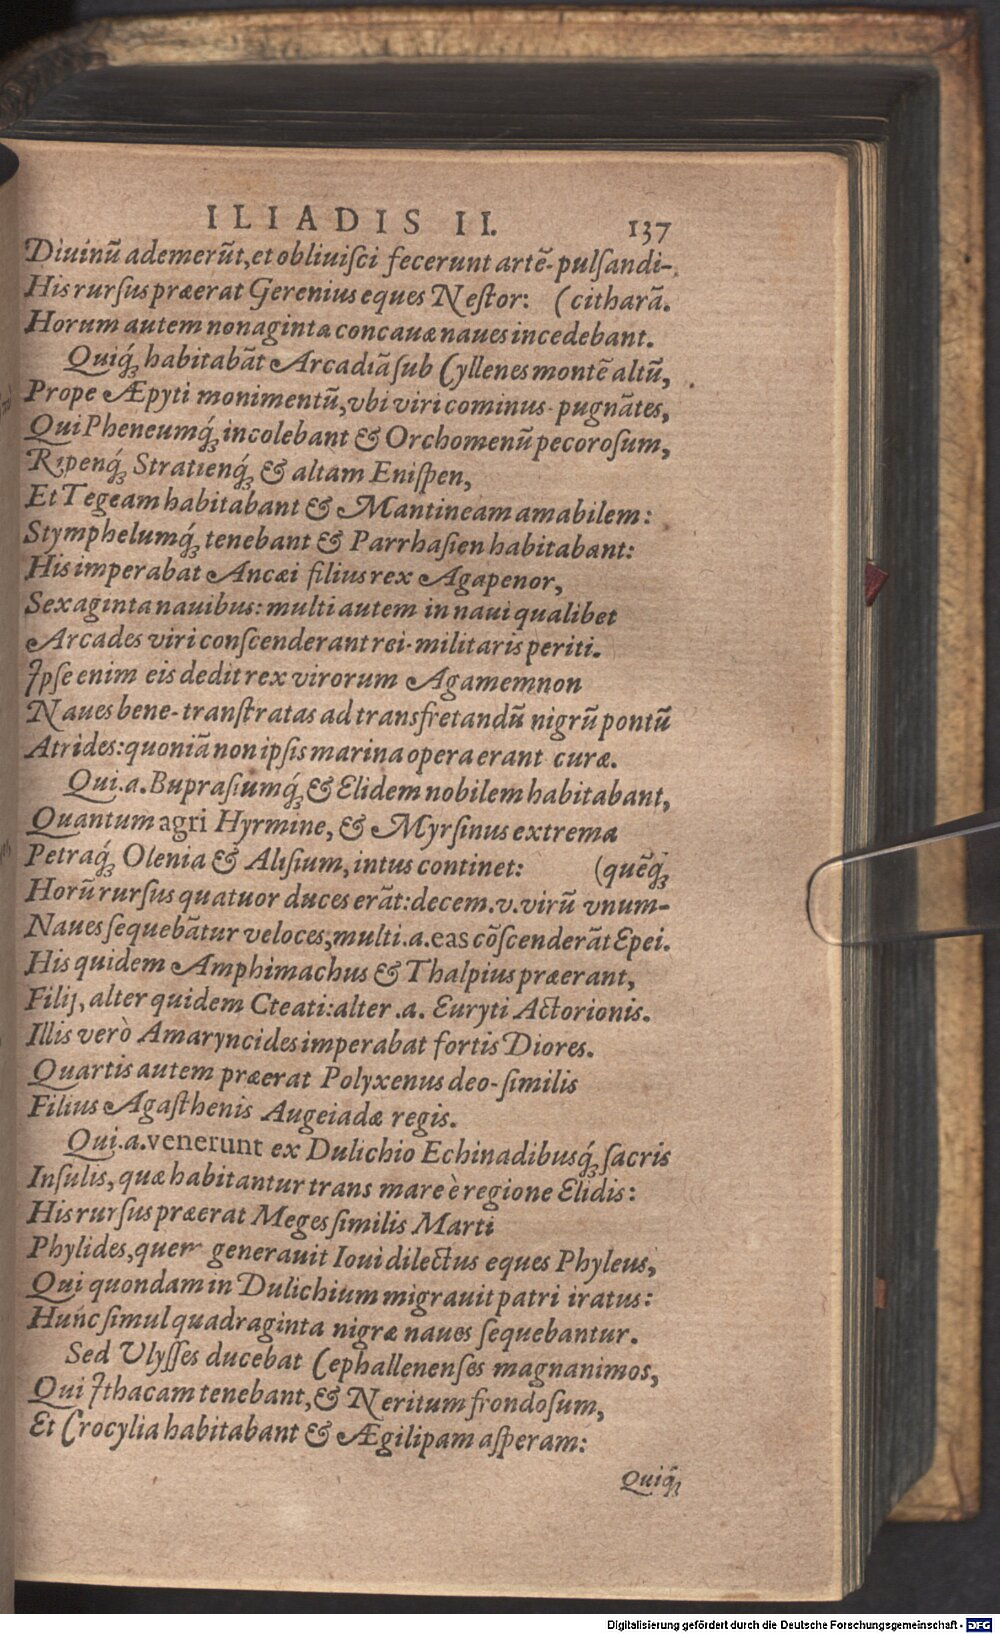 ILIADIS II. 137
Diuinũ ademerũt, et obliuiſci fecerunt artẽ-pulſandi-
His rurſus præerat Gerenius eques Neſtor: (citharã.
Horum autem nonaginta concauæ naues incedebant.
Quiq́ꝫ habitabãt Arcadiã ſub Cyllenes montẽ altũ,
Prope Æpyti monimentũ, vbi viri cominus-pugnãtes,
Qui Pheneumq́ꝫ incolebant & Orchomenũ pecoroſum,
Ripenq́ꝫ Stratienq́ꝫ & altam Eniſpen,
Et Tegeam habitabant & Mantineam amabilem:
Stymphelumq́ꝫ tenebant & Parrhaſien habitabant:
His imperabat Ancæi filius rex Agapenor,
Sexaginta nauibus: multi autem in naui qualibet
Arcades viri conſcenderant rei-militaris periti.
Ipſe enim eis dedit rex virorum Agamemnon
Naues bene-tranſtratas ad transfretandũ nigrũ pontũ
Atrides: quoniã non ipſis marina opera erant curæ.
Qui.a. Bupraſiumq́ꝫ & Elidem nobilem habitabant,
Quantum agri Hyrmine, & Myrſinus extrema
Petraq́ꝫ Olenia & Aliſium, intus continet: (quẽq́ꝫ
Horũ rurſus quatuor duces erãt: decem.v. virũ vnum-
Naues ſequebãtur veloces, multi.a. eas cõſcenderãt Epei.
His quidem Amphimachus & Thalpius præerant,
Filij, alter quidem Cteati: alter .a. Euryti Actorionis.
Illis verò Amaryncides imperabat fortis Diores.
Quartis autem præerat Polyxenus deo-ſimilis
Filius Agaſthenis Augeiadæ regis.
Qui.a. venerunt ex Dulichio Echinadibusq́ꝫ ſacris
Inſulis, quæ habitantur trans mare è regione Elidis:
His rurſus præerat Meges ſimilis Marti
Phylides, quem generauit Ioui dilectus eques Phyleus,
Qui quondam in Dulichium migrauit patri iratus:
Hunc ſimul quadraginta nigræ naues ſequebantur.
Sed Vlyſſes ducebat Cephallenenſes magnanimos,
Qui Ithacam tenebant, & Neritum frondoſum,
Et Crocylia habitabant & Ægilipam aſperam:
Quiq́ꝫ
Digitalisierung gefördert durch die Deutsche Forschungsgemeinschaft - DFG